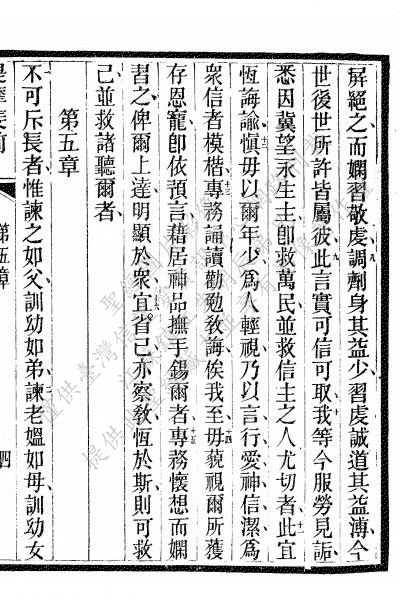 屏絕之而嫻習敬虔調劑身其益少習虔誠道其益溥今
世後世所許皆屬彼此言實可信可取我等今服勞見詬
悉因冀望永生主卽救萬民並救信主之人尤切者此宜
恆誨諭愼毋以爾年少爲人輕視乃以言行愛神信潔爲
衆信者模楷專務誦讀勸勉敎誨俟我至毋藐視爾所獲
存恩寵卽依預言藉居神品撫手錫爾者專務懷想而嫻
習之俾爾上達明顯於衆宜省己亦察敎恆於斯則可救
己並救諸聽爾者
第五章
不可斥長者惟諫之如父訓幼如弟諫老媼如母訓幼女
第五章